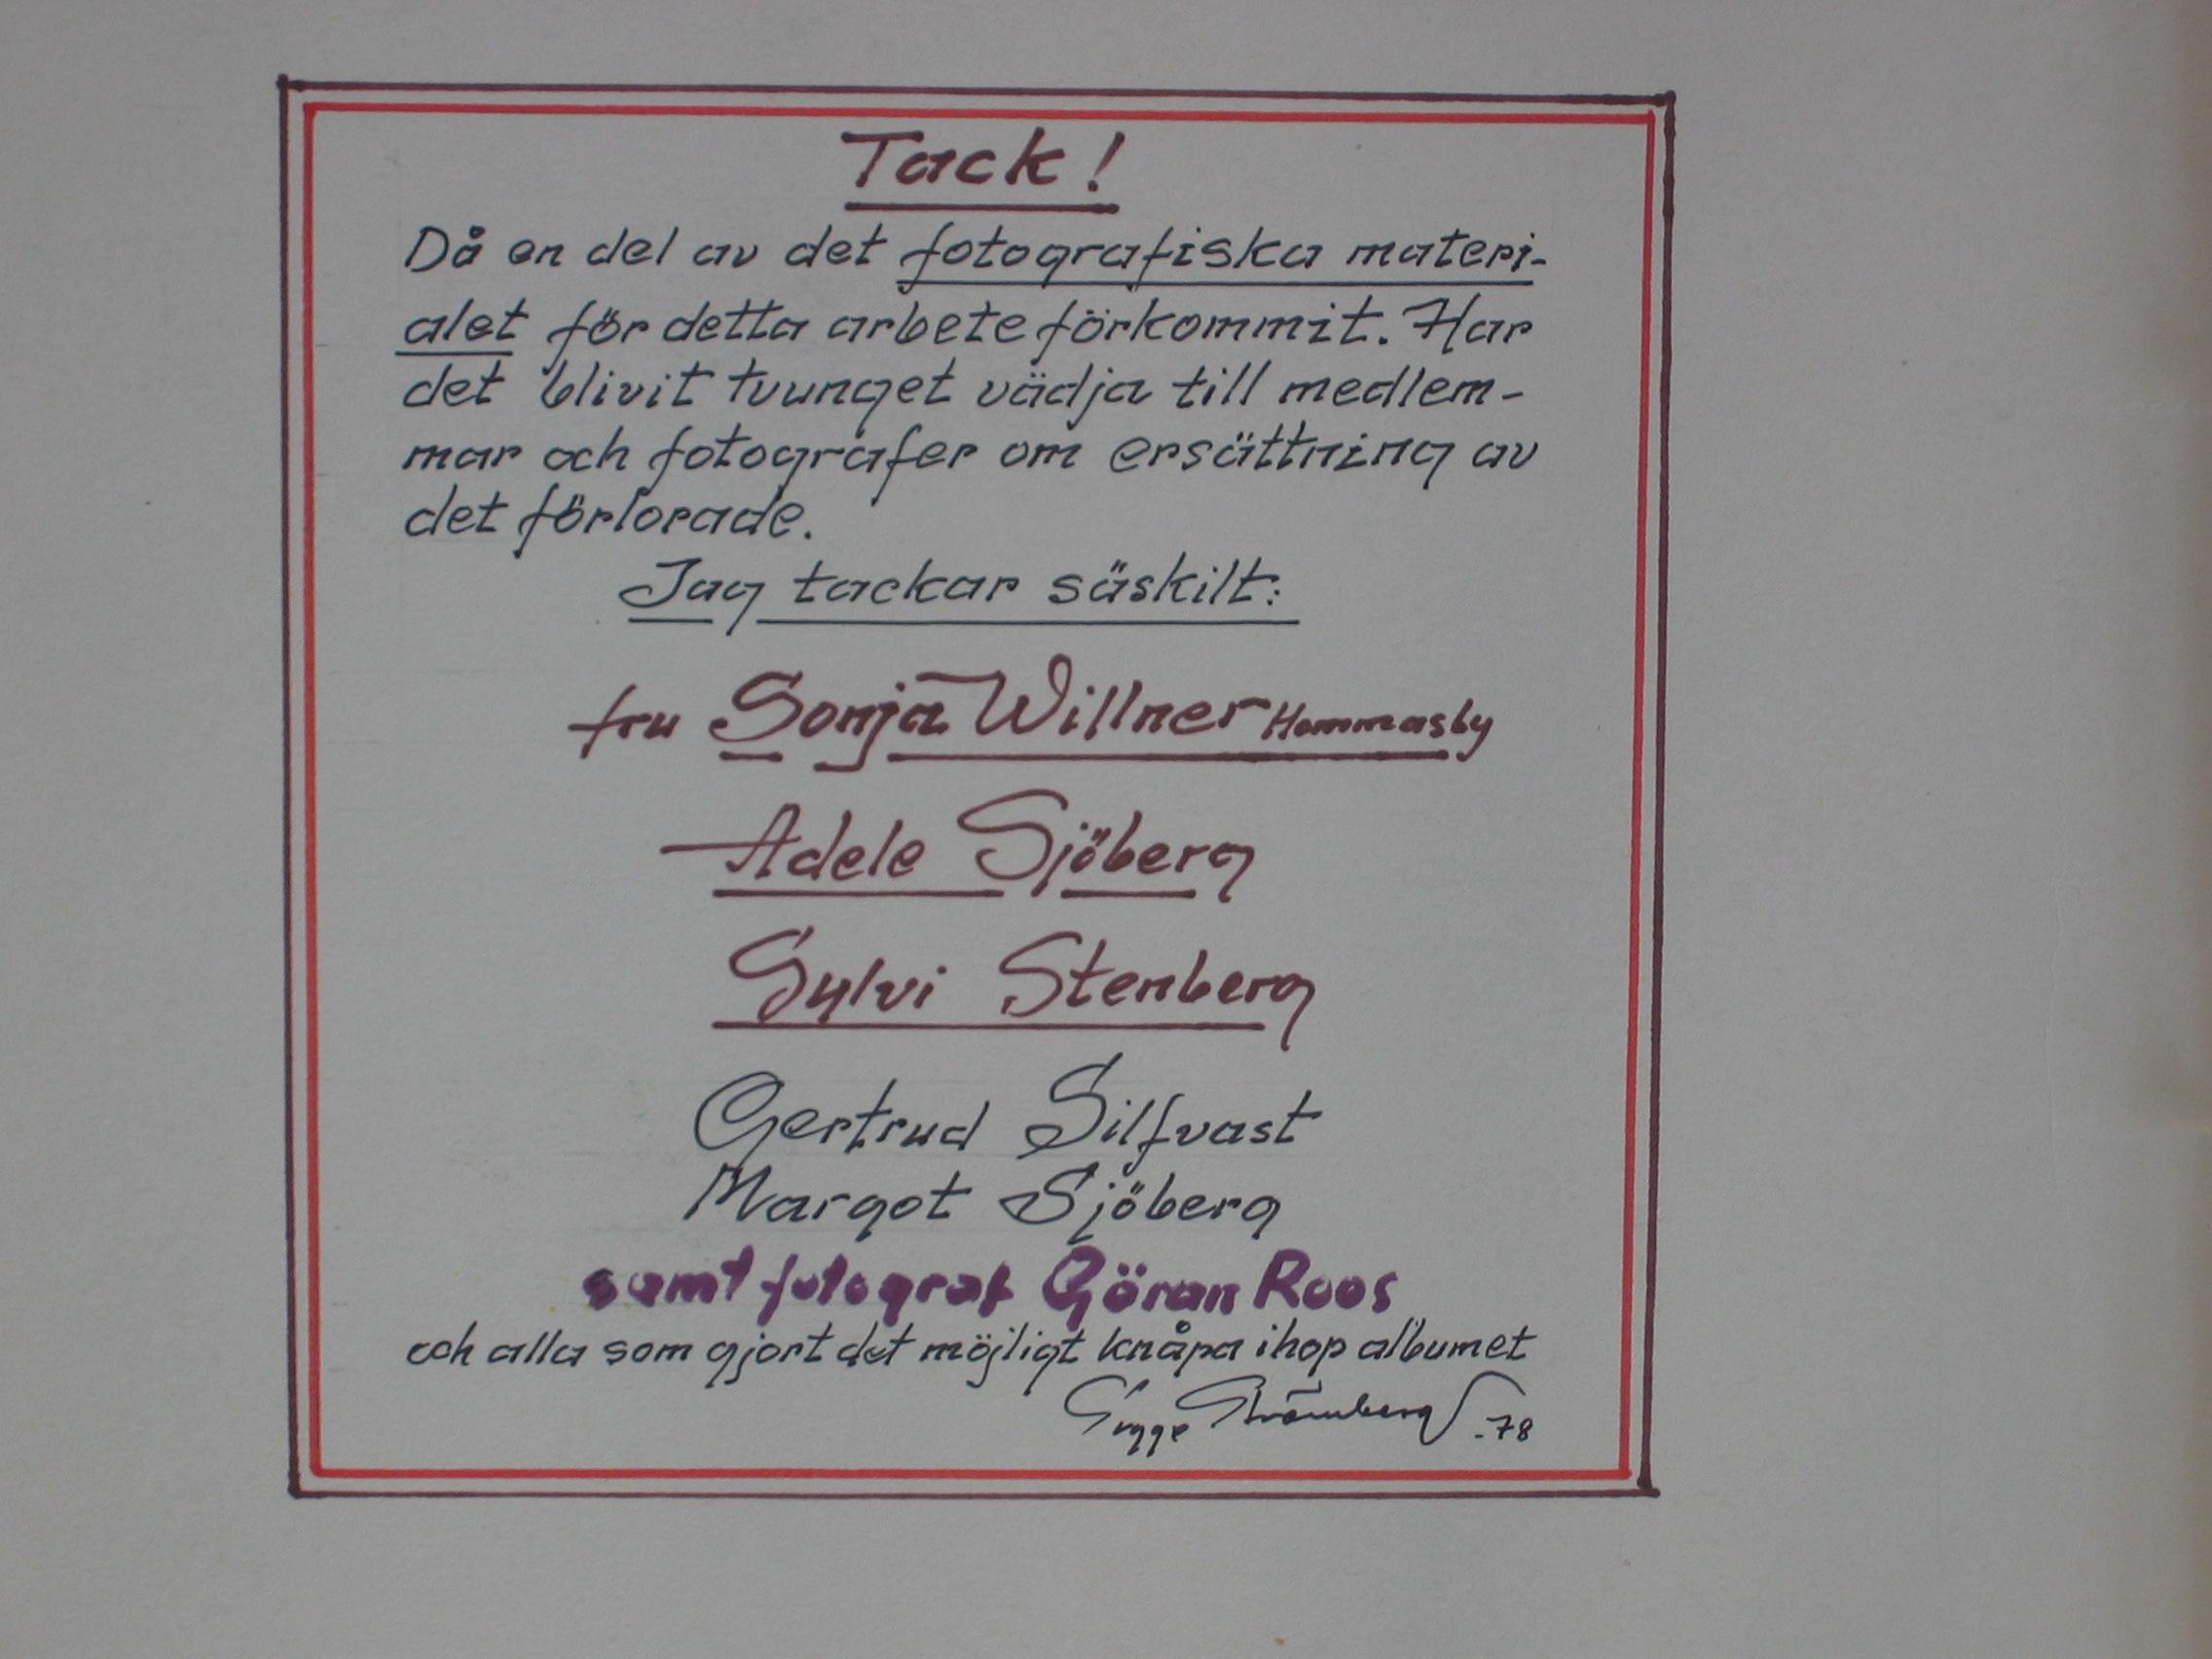 Tack!
Då en del av det fotografiska materi-
alet för detta arbete förkommit. Har
det blivit tvunget vädja till medlem-
mar och fotografer om ersättning av
det förlorade.
Jag tackar säskilt:
fru Sonja Willner Hommasby
Adele Sjöberg
Sylvi Stenberg
Gertrud Silfvast
Margot Sjöberg
samt fotograf Göran Roos
och alla som gjort det möjligt knåpa ihop albumet
Sygge Strömberg -78